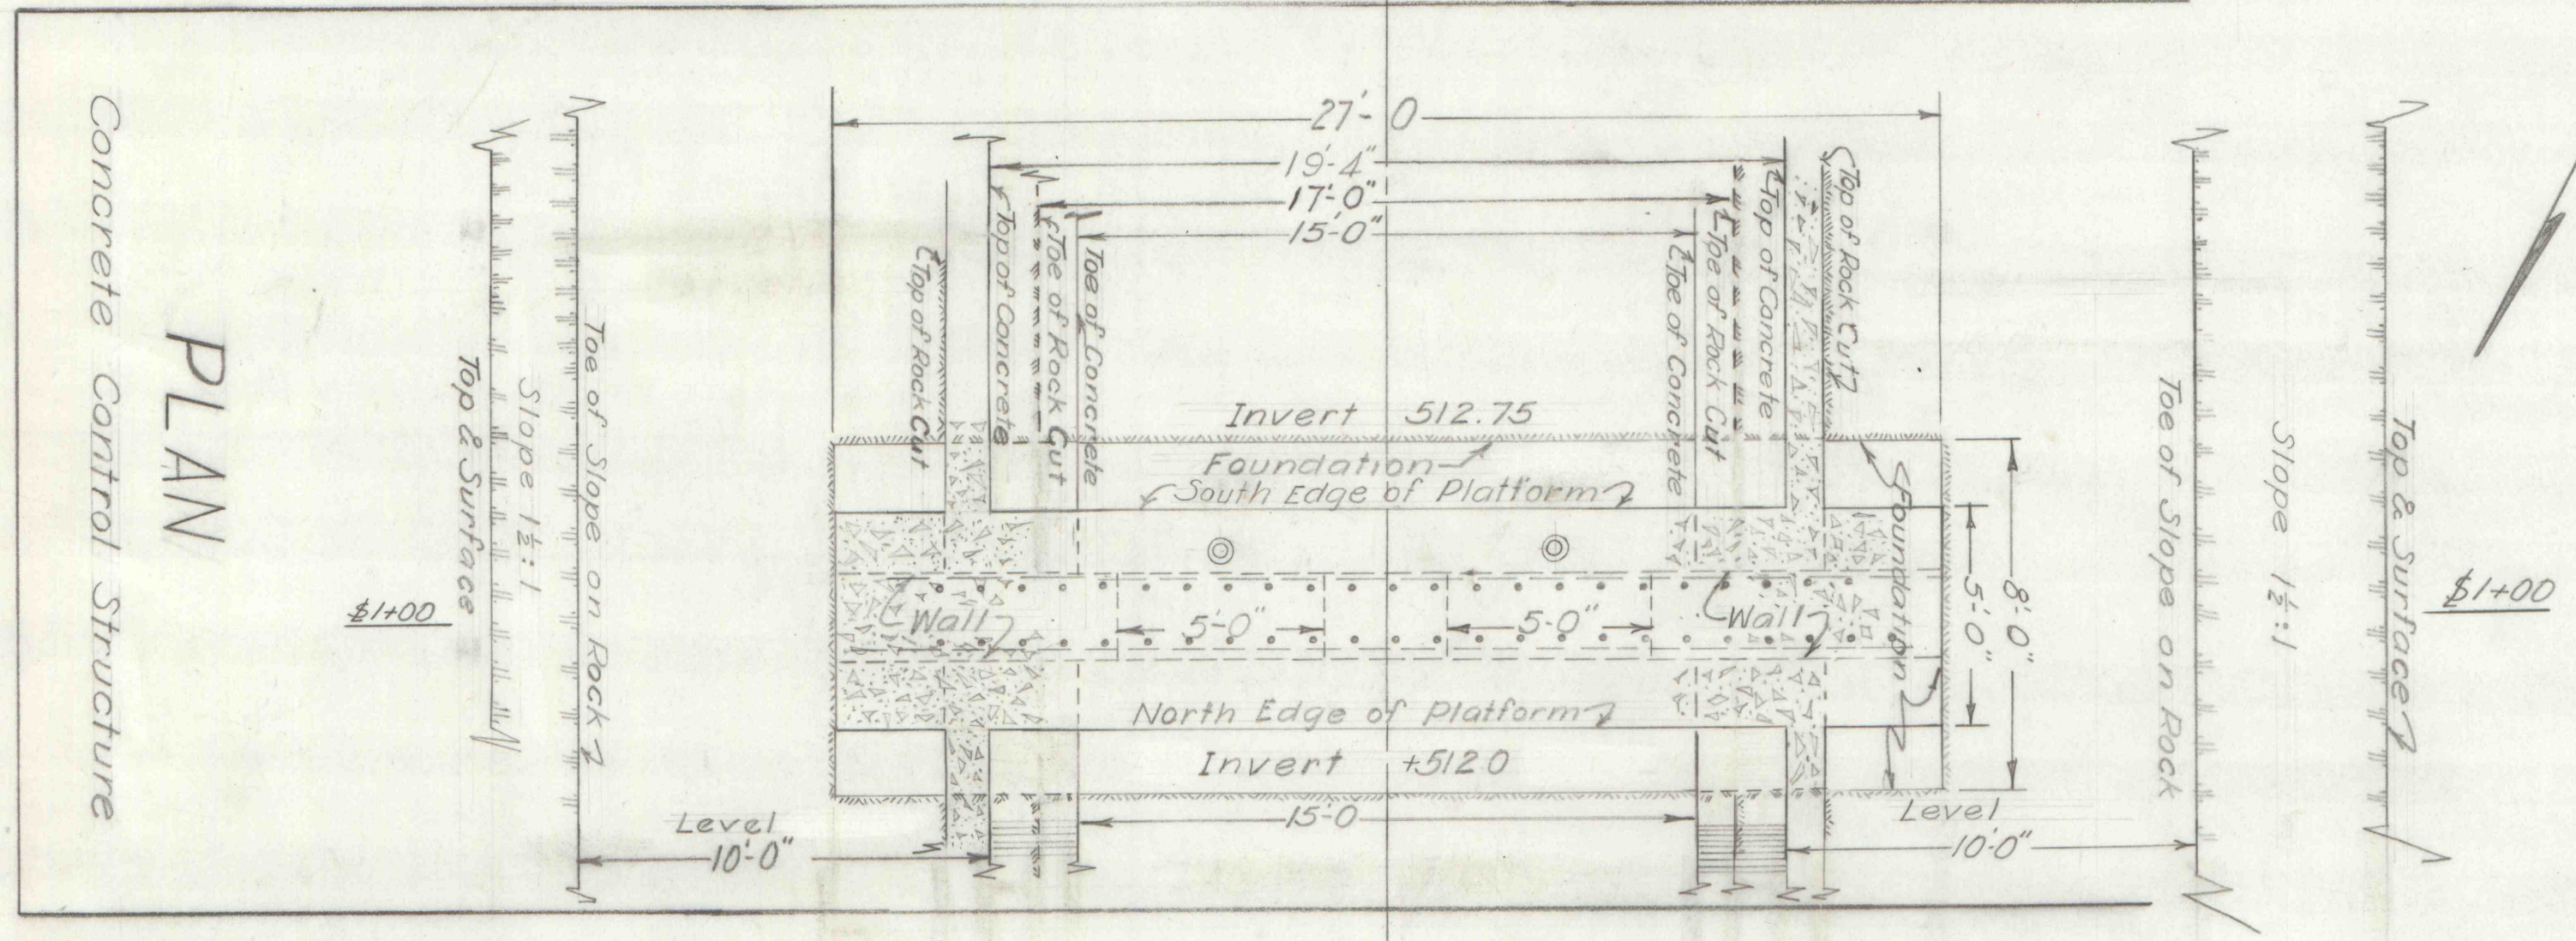 Concrete Control Structure
PLAN
$1+00
Top & Surface
Slope 1½:1
Toe of Slope on Rock
27'-0
19'-4"
17'-0"
15'-0"
Top of Rock Cut
Top of Concrete
Toe of Rock Cut
Toe of Concrete
Toe of Concrete
Toe of Rock Cut
Top of Concrete
Top of Rock Cut
Invert 512.75
Foundation
South Edge of Platform
Foundation
Wall
5'-0"
5-0"
Wall
5'-0"
8'-0"
North Edge of Platform
Invert +512.0
15'-0
Level
10'-0"
Level
10'-0"
Toe of Slope on Rock
Slope 1½:1
Top & Surface
$1+00